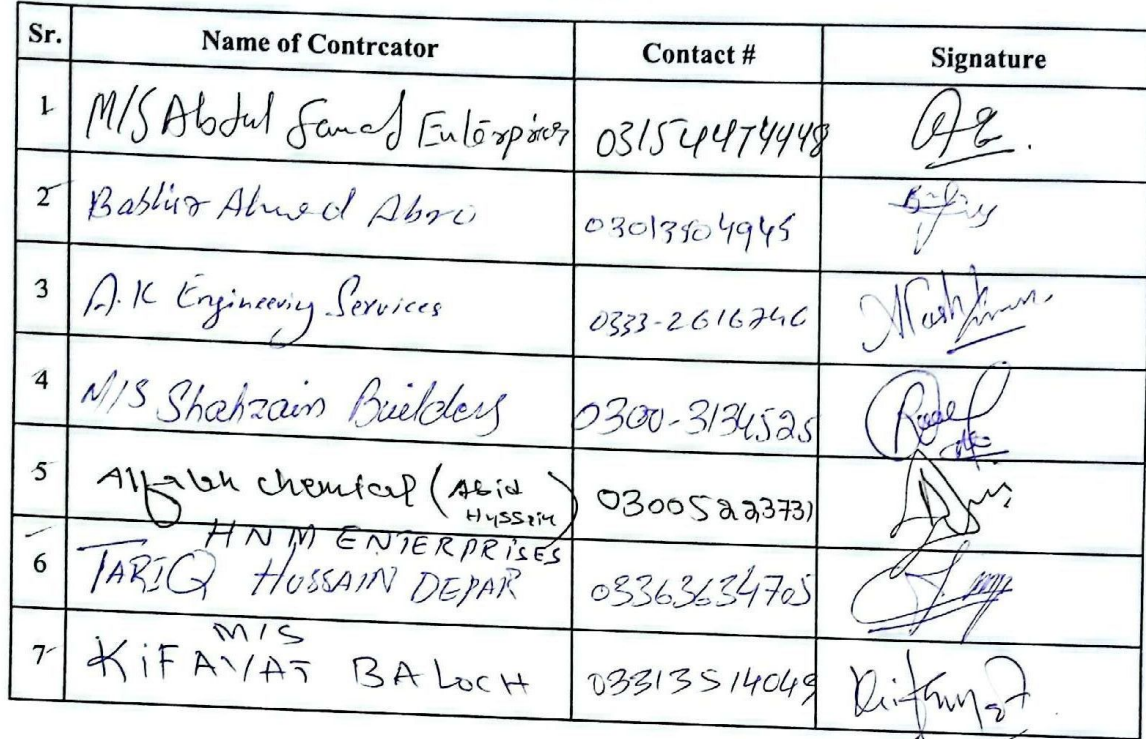 Sr. Name of Contrcator Contact # Signature
1 M/S Abdul Samad Enterprises 031544474448
2 Bashir Ahmed Abro 03013904945
3 A.K Engineering Services 0333-2616746
4 M/S Shahzain Builders 0300-3134525
5 Alfalah chemical (Abid Hussain) 03005223731
HNM ENTERPRISES
6 TARIQ HUSSAIN DEPAR 03363634705
M/S
7 KiFAYAT BALOCH 03313514049